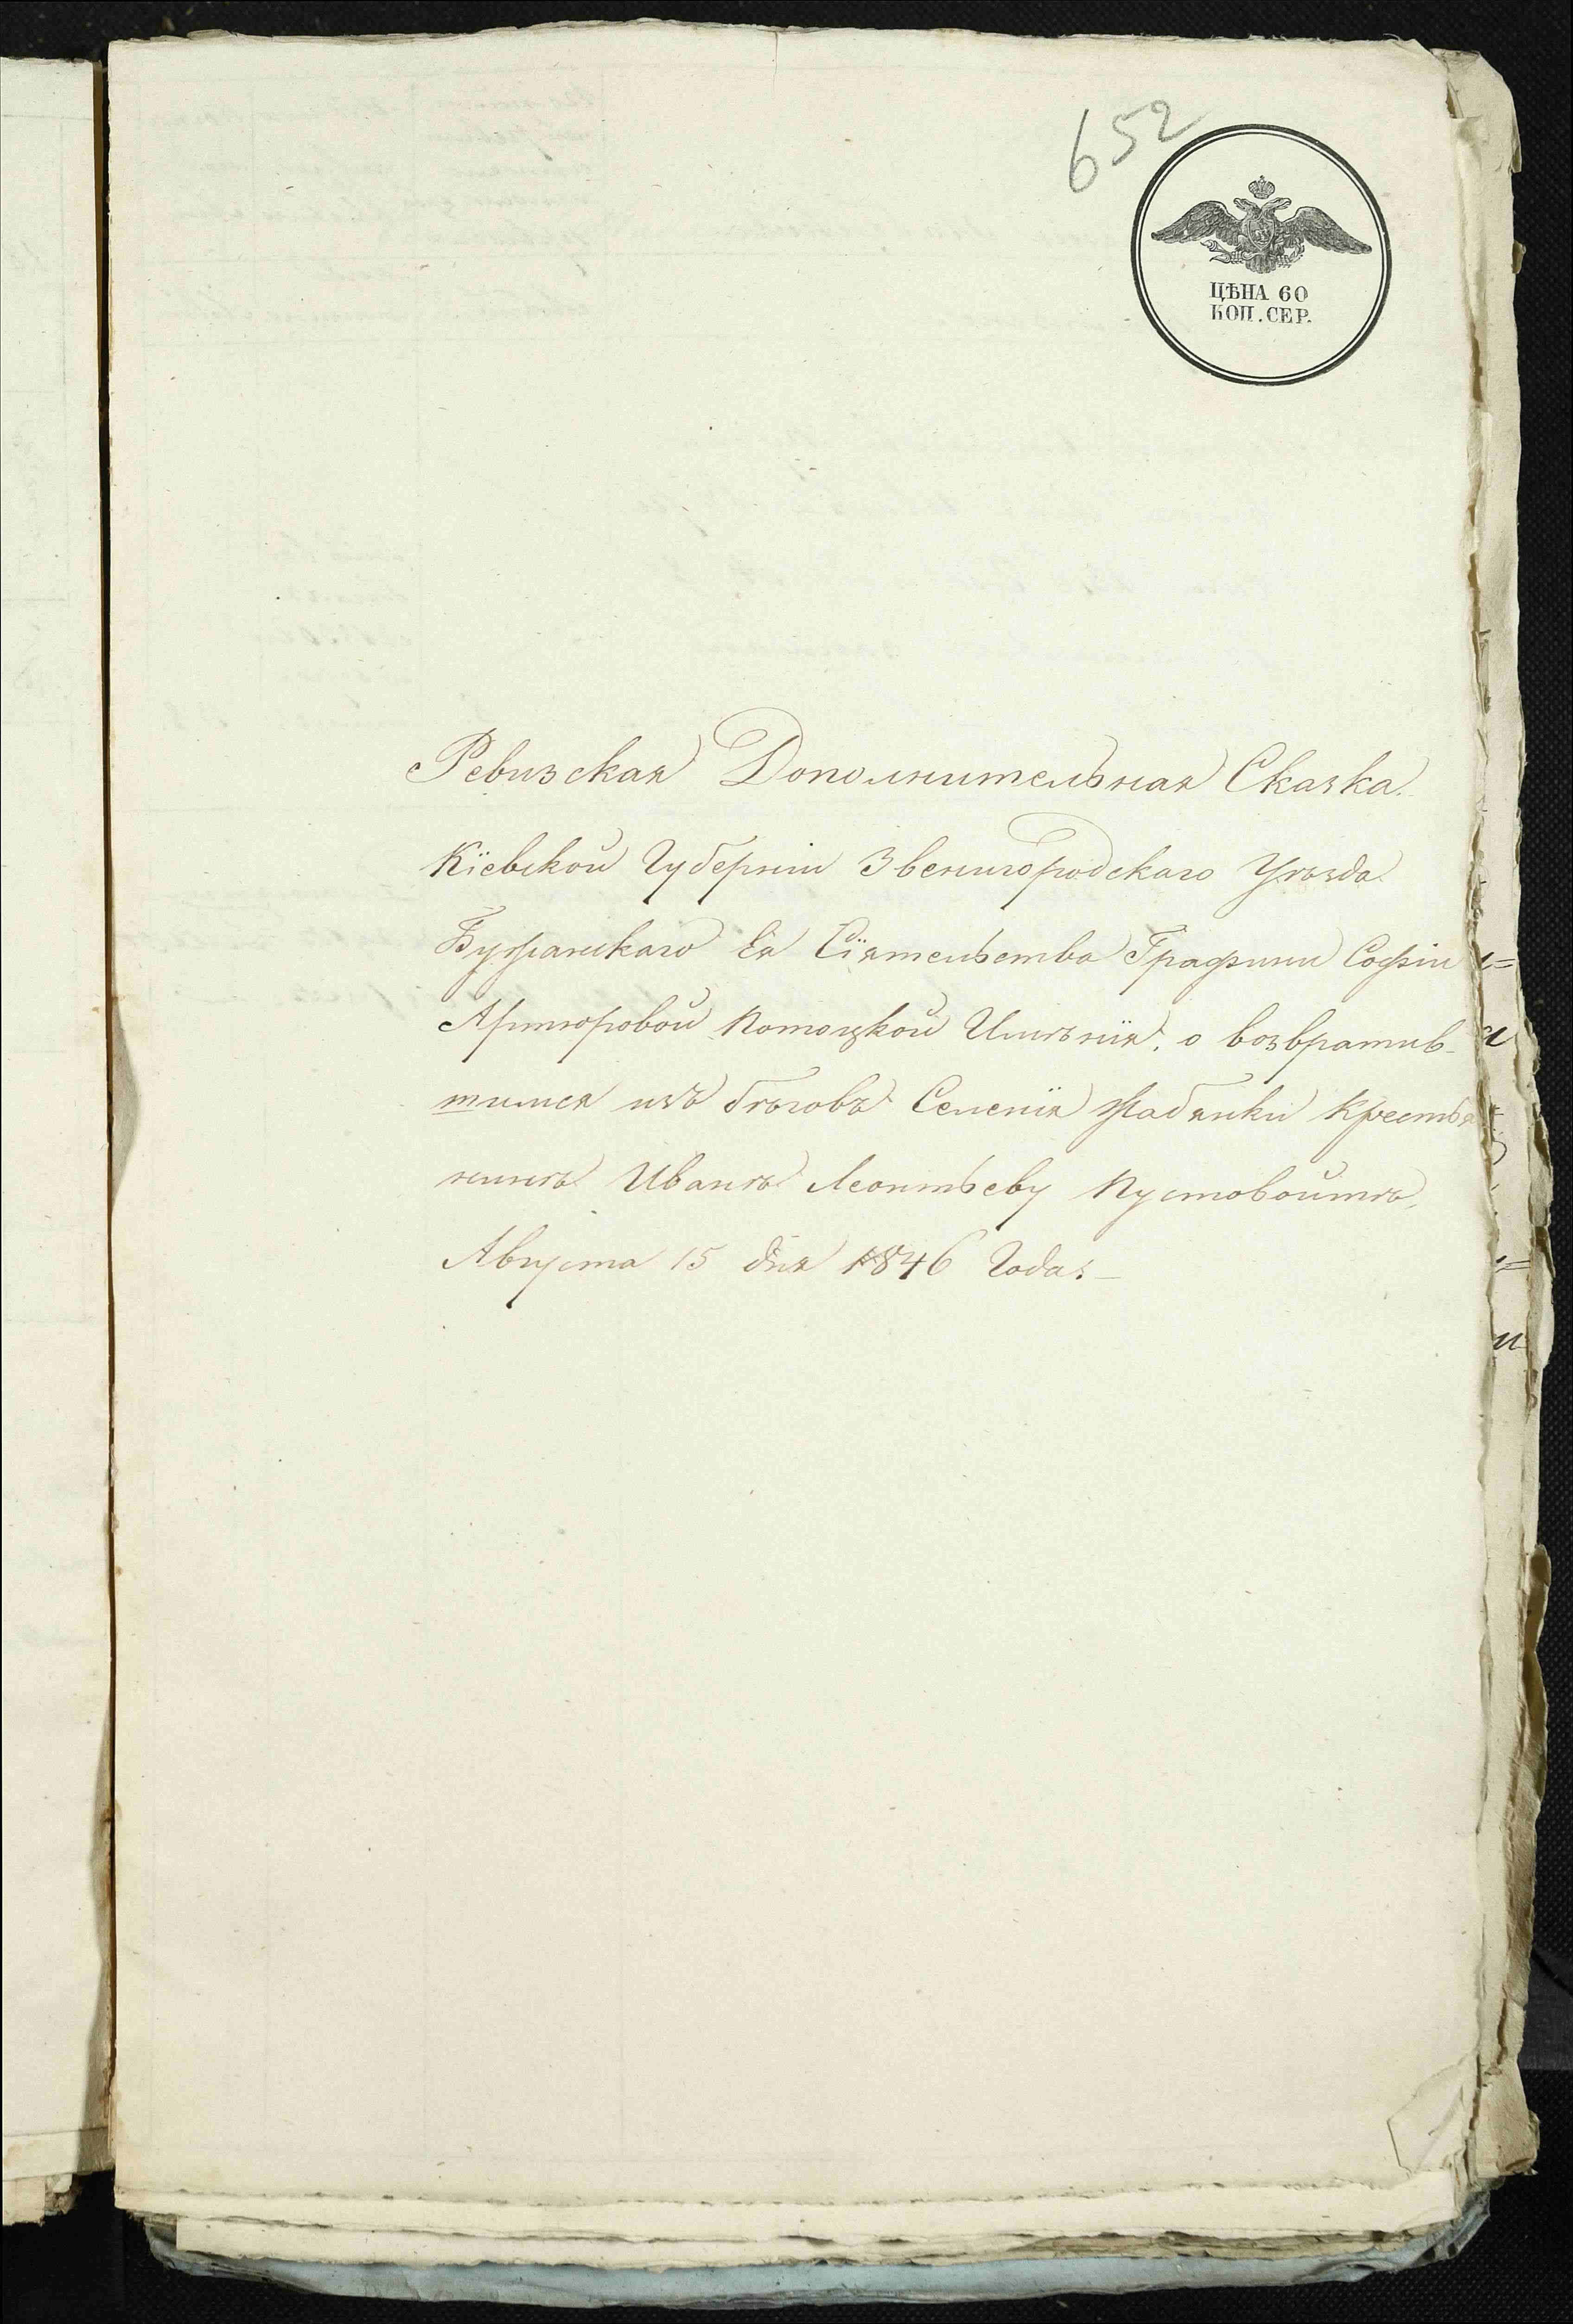 652
ЦѢНА 60
КОП. СЕР.
Ревизская Дополнительная Сказка
Кіевской Губерніи Звенигородскаго Уѣзда
Бужанскаго Ея Сіятельства Графини Софіи
Артуровой Потоцкой Имѣнія, о возвратив-
шимся изъ бѣговъ Селенія Жабянки Крестья
нинѣ Иванѣ Леонтьеву Пустовойтѣ,
Августа 15 дня 1846 Года.